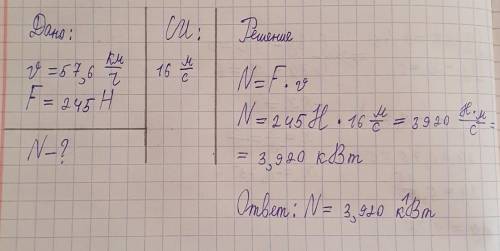 Дано:
v = 57,6 км/ч
F = 245 Н
N – ?
СИ:
16 м/с
Решение
N = F · v
N = 245 Н · 16 м/с = 3920 Н·м/с =
= 3,920 кВт
Ответ: N = 3,920 кВт